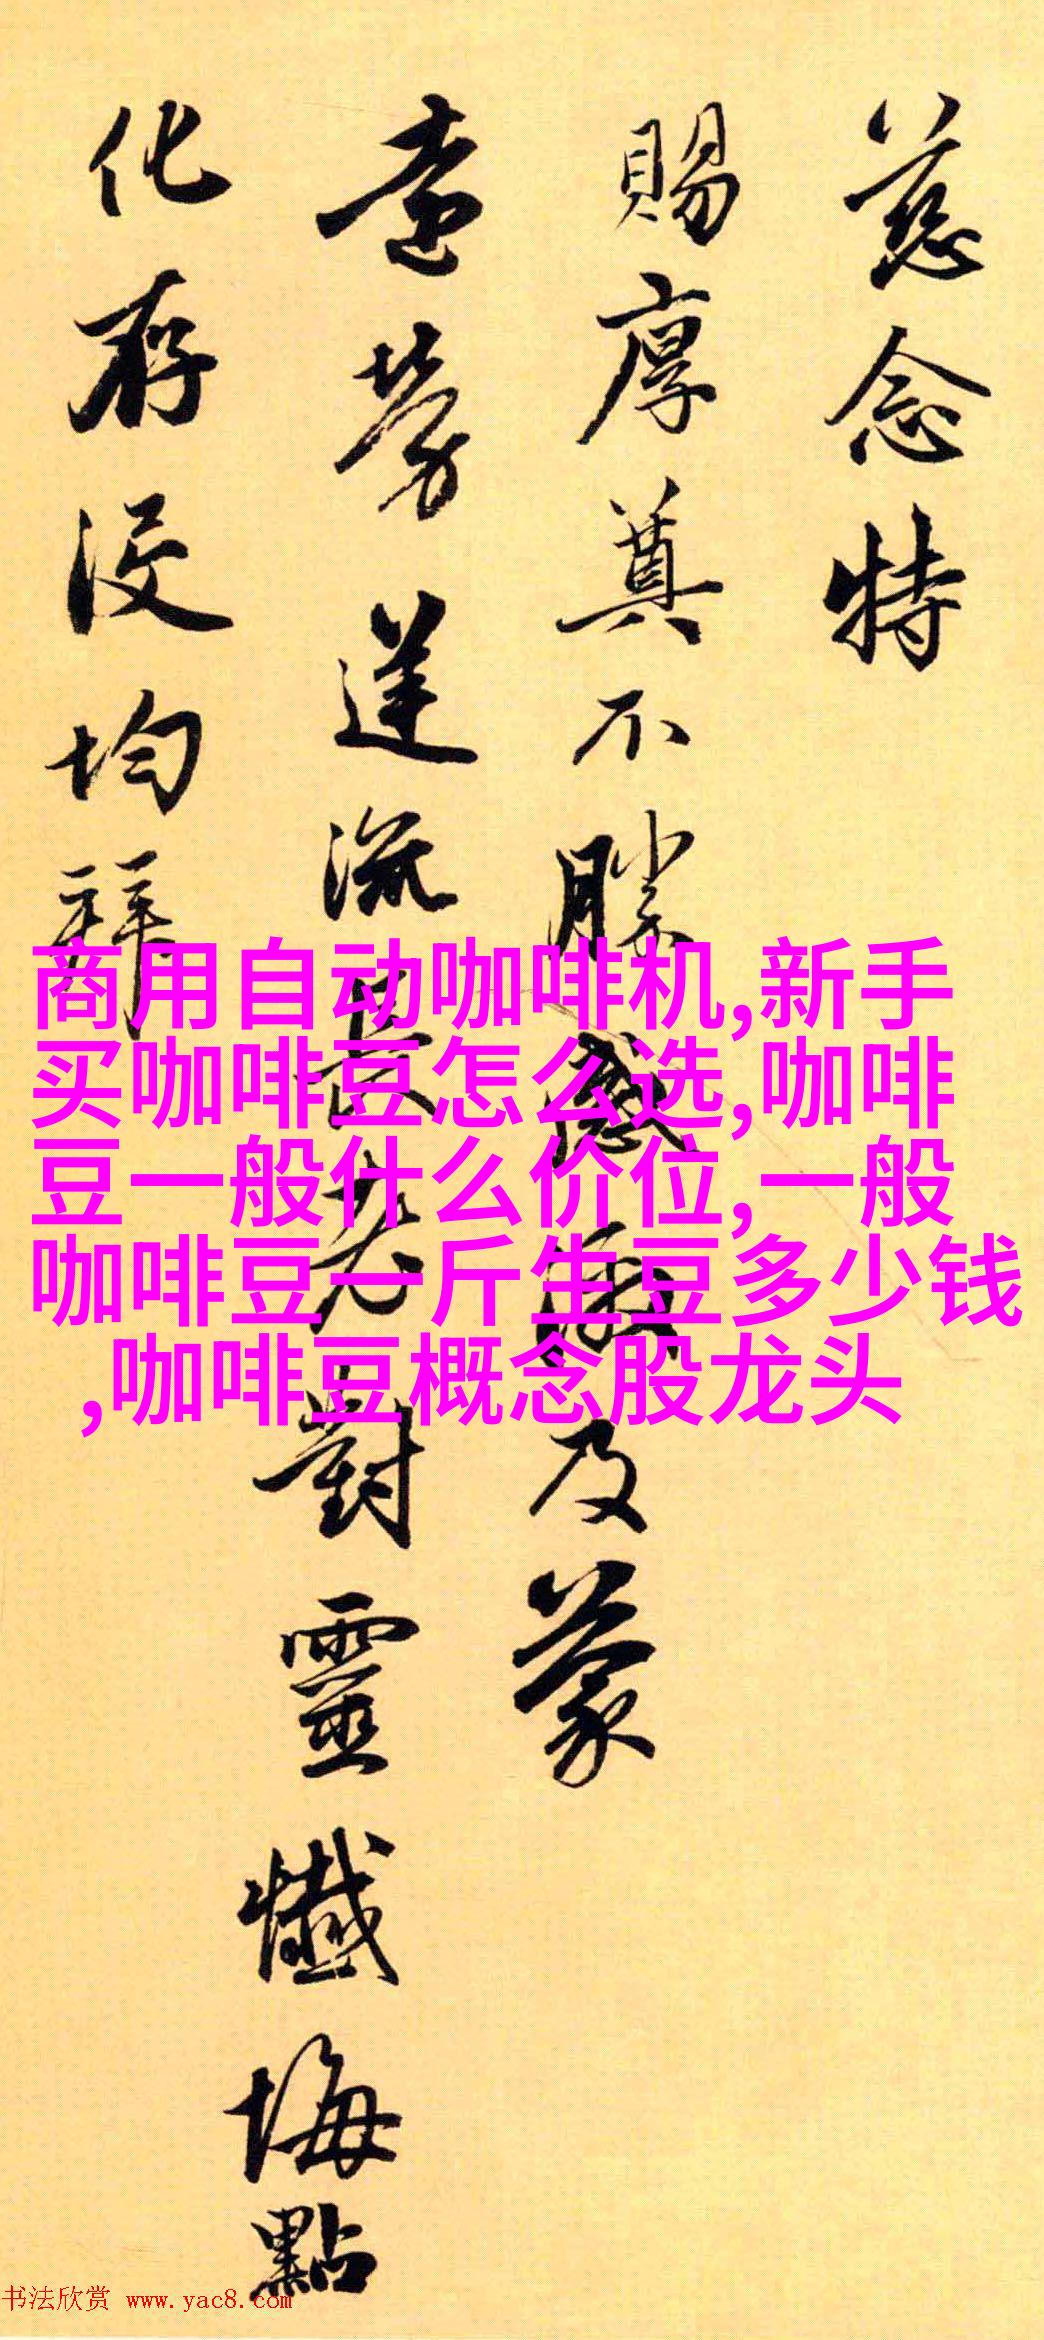 慈念特
賜厚奠不勝感激及蒙
遠勞蓮流長老對靈懺悔點
化存歿均拜
商用自动咖啡机,新手
买咖啡豆怎么选,咖啡
豆一般什么价位,一般
咖啡豆一斤生豆多少钱
,咖啡豆概念股龙头
书法欣赏 www.yac8.com